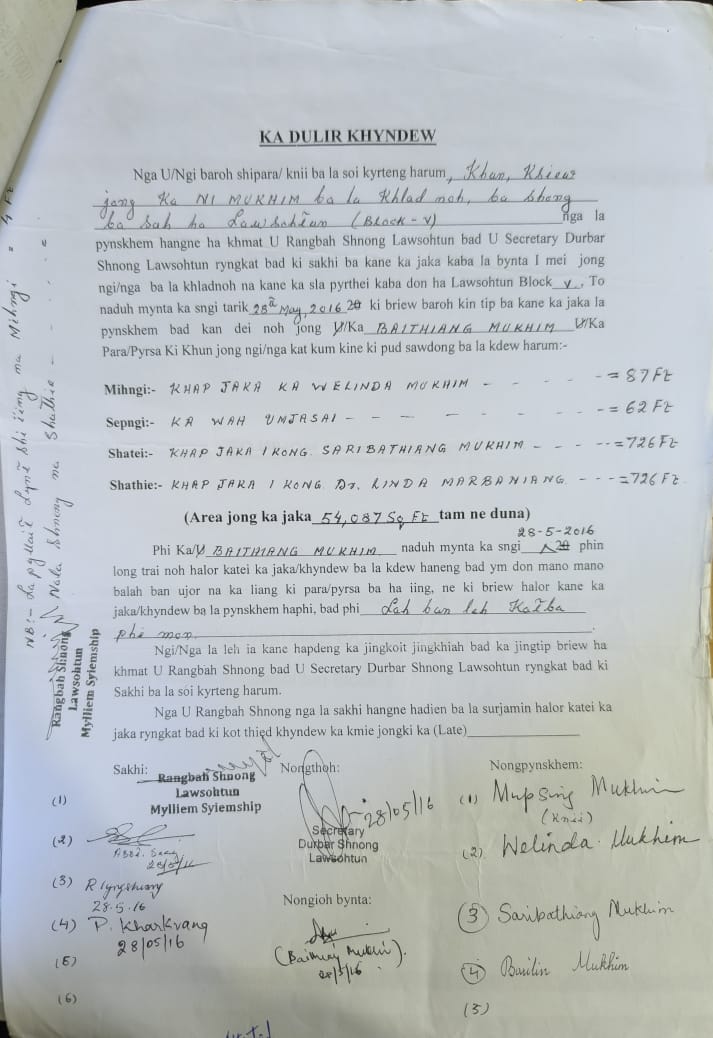 KA DULIR KHYNDEW
Nga U/Ngi baroh shipara/ knii ba la soi kyrteng harum, Khun, Ksiew
jong Ka NI MUKHIM ba la Khlad noh, ba shong
ba sah ha Lawsohtun (BLOCK - V) nga la
pynskhem hangne ha khmat U Rangbah Shnong Lawsohtun bad U Secretary Durbar
Shnong Lawsohtun ryngkat bad ki sakhi ba kane ka jaka kaba la bynta I mei jong
ngi/nga ba la khladnoh na kane ka sla pyrthei kaba don ha Lawsohtun Block V, To
naduh mynta ka sngi tarik 28th May, 2016 20 ki briew baroh kin tip ba kane ka jaka la
pynskhem bad kan dei noh jong U/Ka BAITHIANG MUKHIM U/Ka
Para/Pyrsa Ki Khun jong ngi/nga kat kum kine ki pud sawdong ba la kdew harum:-
Mihngi:- KHAP JAKA KA WELINDA MUKHIM - - - - - = 87 Ft
Sepngi:- KA WAH UMJASAI - - - - - - - - = 62 Ft
Shatei:- KHAP JAKA I KONG. SARIBATHIANG MUKHIM. - - - -- = 726 Ft
Shathie:- KHAP JAKA I KONG. Dr. LINDA MARBANIANG. - - - - = 726 Ft
(Area jong ka jaka 54,087 Sq Ft tam ne duna)
28-5-2016
Phi Ka/U BAITHIANG MUKHIM naduh mynta ka sngi 20 phin
long trai noh halor katei ka jaka/khyndew ba la kdew haneng bad ym don mano mano
balah ban ujor na ka liang ki para/pyrsa ba ha iing, ne ki briew halor kane ka
jaka/khyndew ba la pynskhem haphi, bad phi Lah ban leh Katba
phi mon.
Ngi/Nga la leh ia kane hapdeng ka jingkoit jingkhiah bad ka jingtip briew ha
khmat U Rangbah Shnong bad U Secretary Durbar Shnong Lawsohtun ryngkat bad ki
Sakhi ba la sói kyrteng harum.
Nga U Rangbah Shnong nga la sakhi hangne hadien ba la surjamin halor katei ka
jaka ryngkat bad ki kot thied khyndew ka kmie jongki ka (Late)
NB:- La pyllait lynti shi iing na Mihngi = 4 Ft
Nala Shnong na Shathie - - - - - "
Rangbah Shnong
Lawsohtun
Mylliem Syiemship
Sakhi:
Nongthoh:
Nongpynskhem:
(1)
Rangbah Shnong
Lawsohtun
Mylliem Syiemship
28/05/16
Secretary
Durbar Shnong
Lawsohtun
(1) Mupsing Mukhim
(Knii)
(2)
Asst. Secy.
28/05/16
(2) Welinda. Mukhim
(3) R lyngkhiang
28.5.16
(4) P. Kharkrang
28/05/16
Nongioh bynta:
(Baithiang Mukhim).
28/5/16
(3) Saribathiang Mukhim
(4) Barilin Mukhim
(5)
(5)
(6)